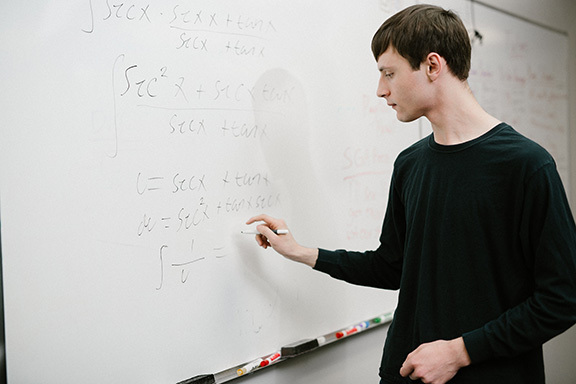 ∫ secx · secx + tanx / secx + tanx
∫ sec²x + secx tanx / secx + tanx
u = secx + tanx
du = sec²x + tanx secx
∫ 1/u =